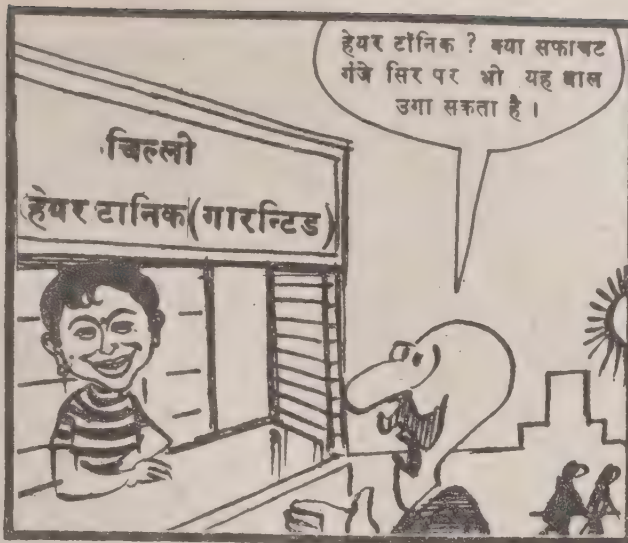 हेयर टॉनिक ? क्या सफाचट
गंजे सिर पर भी यह बाल
उगा सकता है ।
चिल्ली
हेयर टानिक (गारन्टिड)